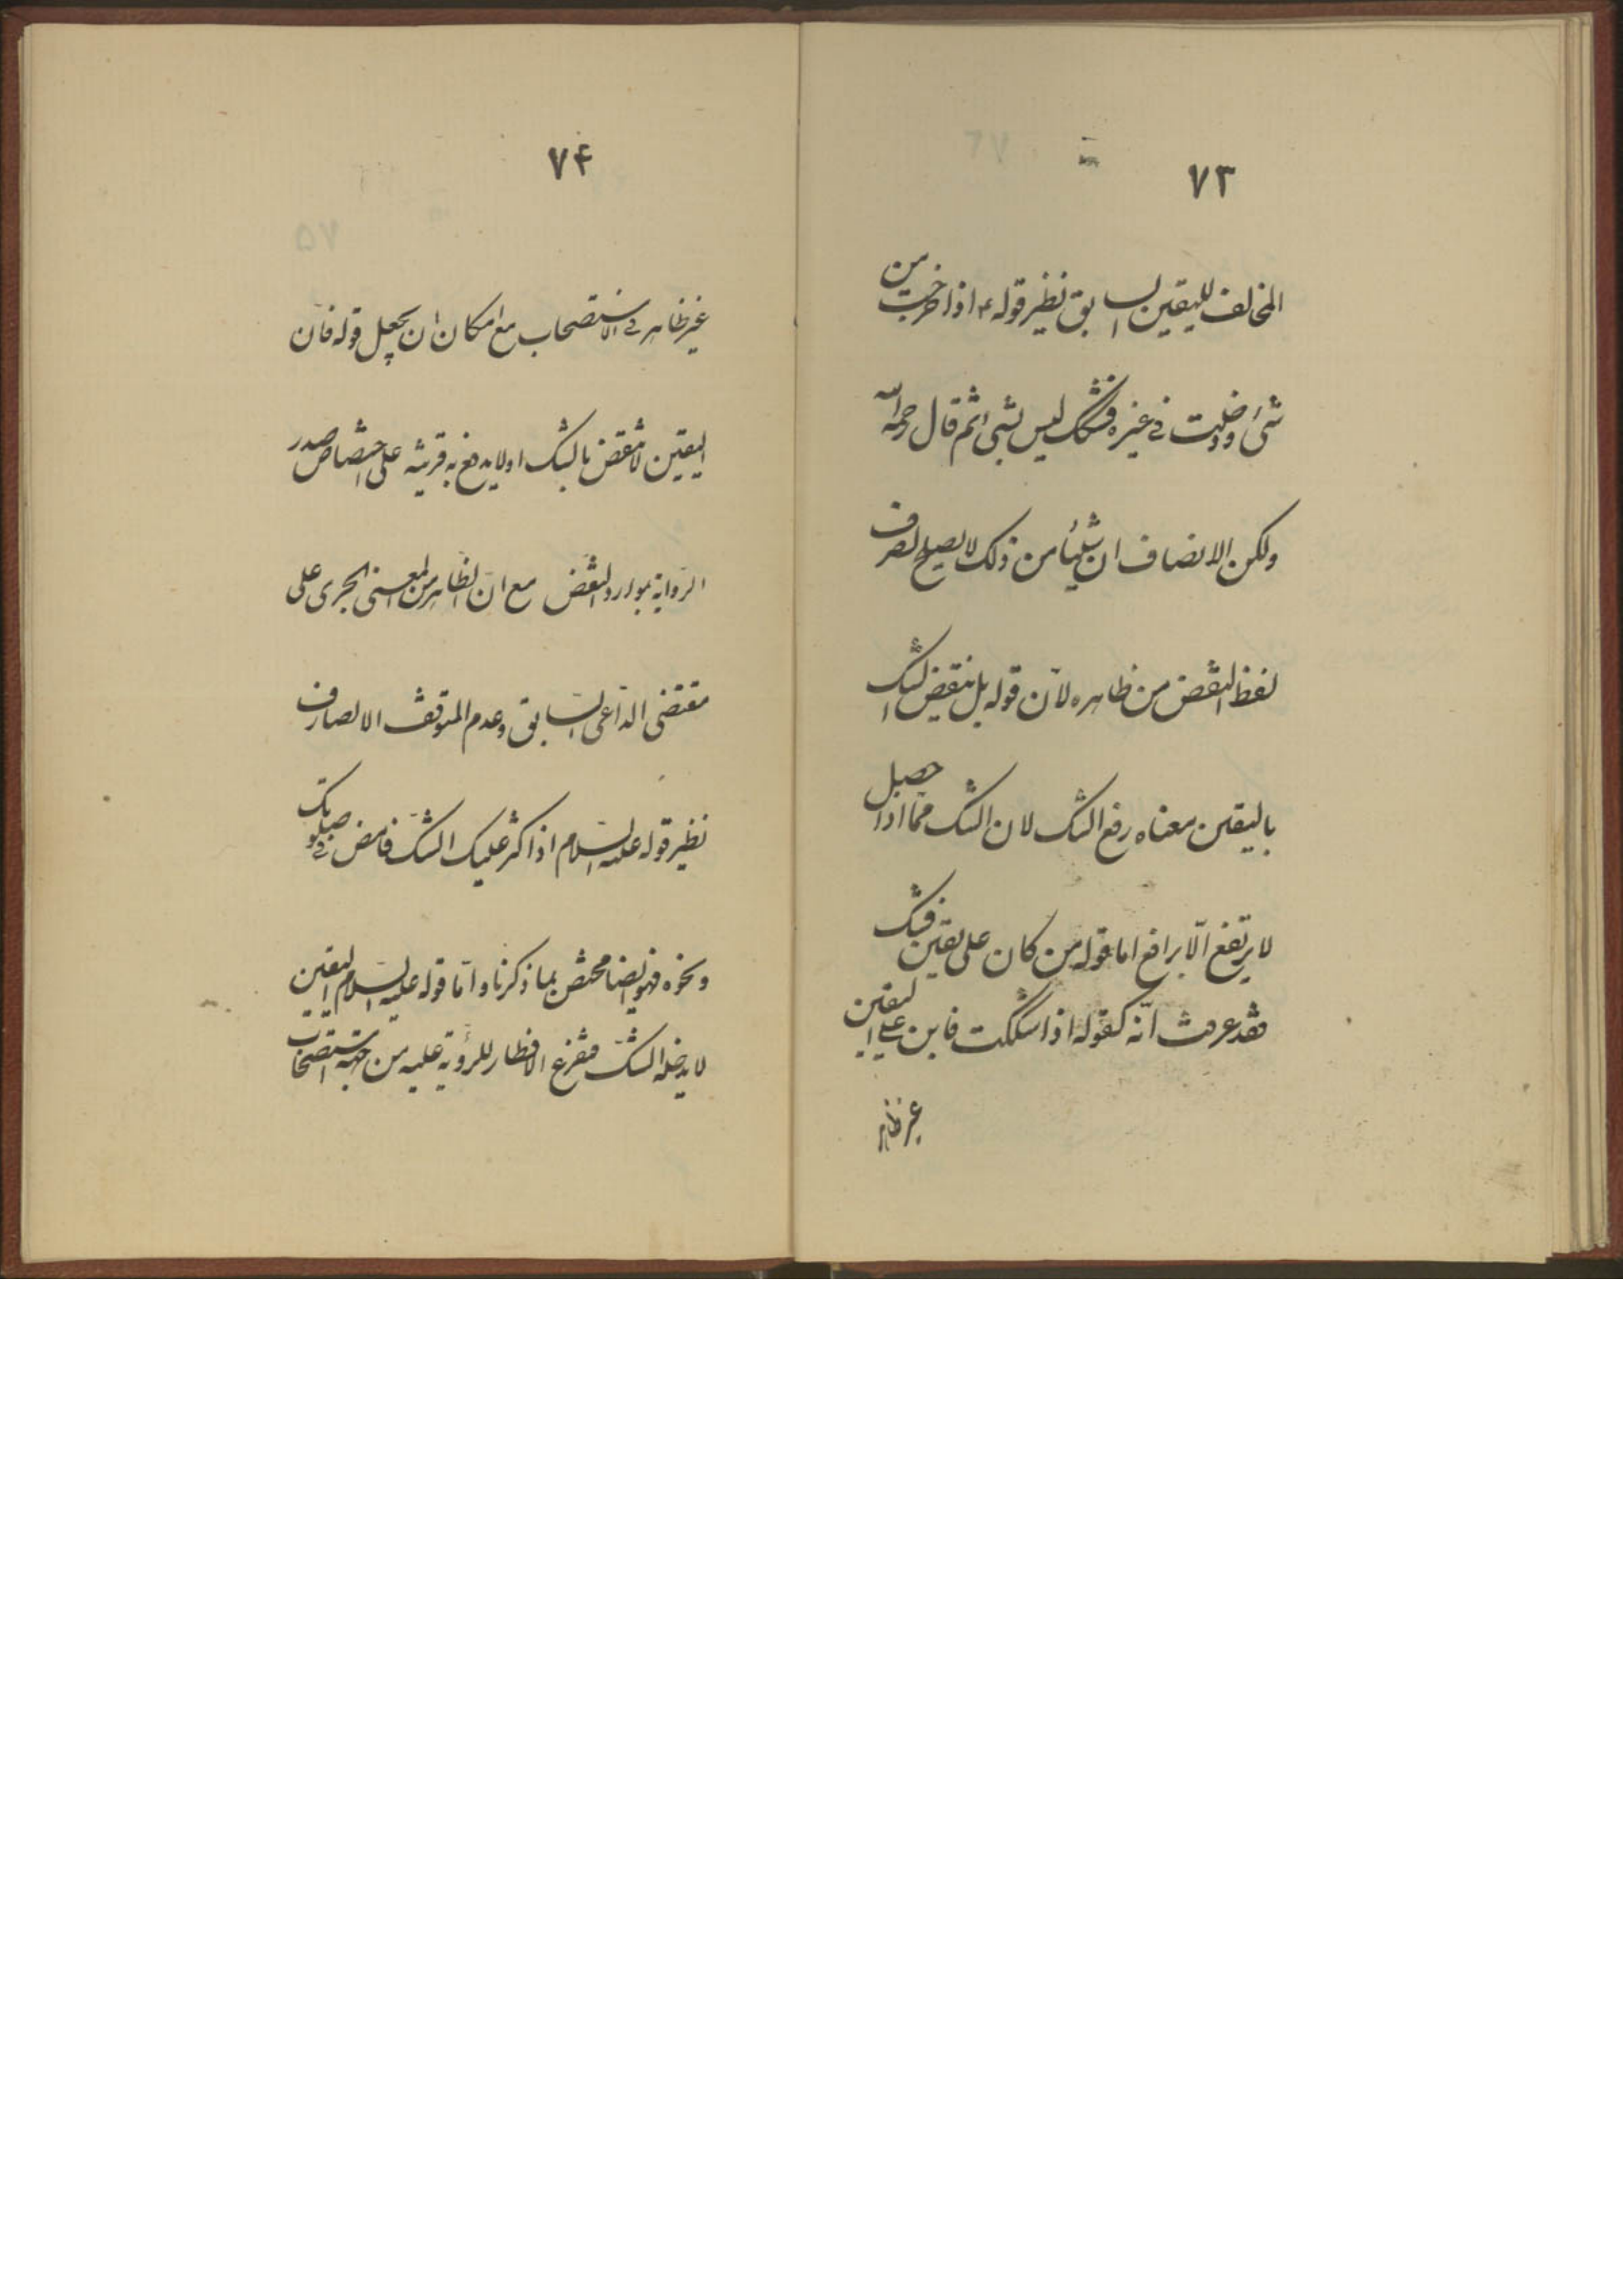 ٧٣
المخالف لليقين السابق نظير قوله ع اذا خرجت من
شئ و دخلت فى غيره فشكك ليس بشئ ثم قال رحمه الله
ولكن الانصاف ان شيئا من ذلك لا يصلح لصرف
لفظ النقض من ظاهره لان قوله بل ينقض الشك
باليقين معناه رفع الشك لان الشك مما اذا حصل
لا يرتفع الّا برافع اما قوله من كان على يقين فشك
فقد عرفت انّه كقوله اذا شككت فابن على اليقين
غير ظاهر
٧۴
غير ظاهر فى الاستصحاب مع امكان ان يجعل قوله فانّ
اليقين لا ينقض بالشك اولا يدفع به قرينه على اختصاص صدر
الرّواية بموارد النقض مع انّ الظاهر من المضى الجرى على
مقتضى الدّاعى السّابق وعدم التوقف الا لصارف
نظير قوله عليه السّلام اذا كثر عليك الشكّ فامض فى صلوتك
ونحوه فهو ايضا مختص بما ذكرنا و امّا قوله عليه السّلام اليقين
لا يدخله الشكّ فتفرع الافطار للرؤية عليه من جهة استصحاب